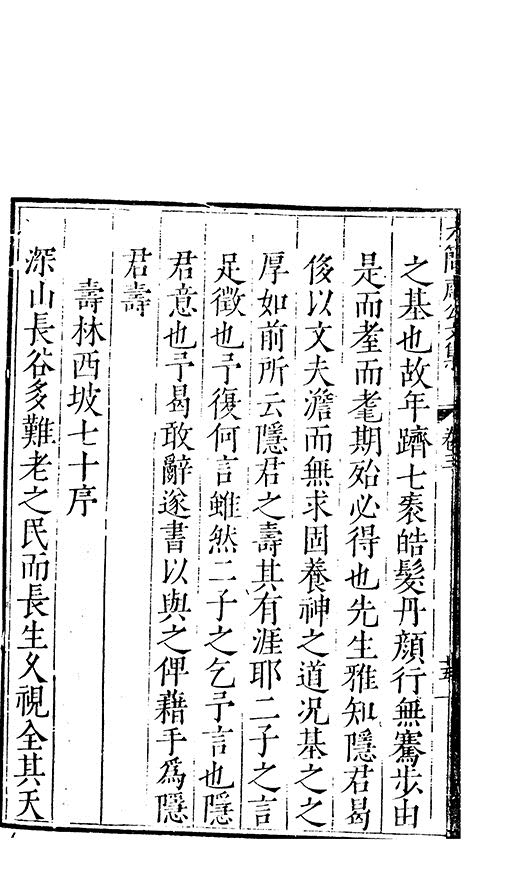 之基也故年躋七袠皓髮丹顏行無騫步由
是而耋而耄期殆必得也先生雅知隱君曷
侈以文夫澹而無求固養神之道况基之之
厚如前所云隱君之壽其有涯耶二子之言
足徵也予復何言雖然二子之乞予言也隱
君意也予曷敢辭遂書以與之俾藉手爲隱
君壽
壽林西坡七十序
深山長谷多難老之民而長生久視全其天